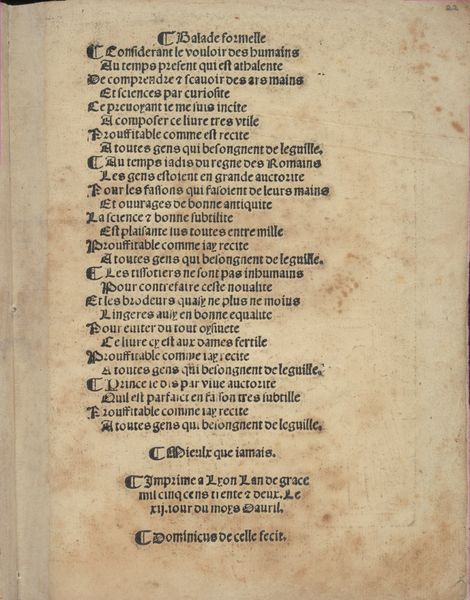 22
¶ Balade formelle
¶ Considerant le vouloir des humains
Au temps present qui est athalente
De comprendre ⁊ scauoir des ars mains
Et sciences par curiosite
Ce preuoyant ie me suis incite
A composer ce liure tres vtile
Prouffitable comme est recite
A toutes gens qui besongnent de leguille.
¶ Au temps iadis du regne des Romains
Les gens estoient en grande auctorite
Pour les fassons qui fasoient de leurs mains
Et ouurages de bonne antiquite
La science ⁊ bonne subtilite
Est plaisante sus toutes entre mille
Prouffitable comme iay recite
A toutes gens qui besongnent de leguille.
¶ Les tissotiers ne sont pas inhumains
Pour contrefaire ceste noualite
Et les brodeurs quasy ne plus ne moins
Lingeres ausy en bonne equalite
Pour euiter du tout oysiuete
Ce liure cy est aux dames fertile
Prouffitable comme iay recite
A toutes gens qui besongnent de leguille.
¶ Prince ie dis par viue auctorite
Quil est parfaict en fasson tres subtille
Prouffitable comme iay recite
A toutes gens qui besongnent de leguille.
¶ Mieulx que iamais.
¶ Imprime a Lyon Lan de grace
mil cinq cens trente ⁊ deux. Le
xij. iour du moys Dauril.
¶ Dominicus de celle fecit.